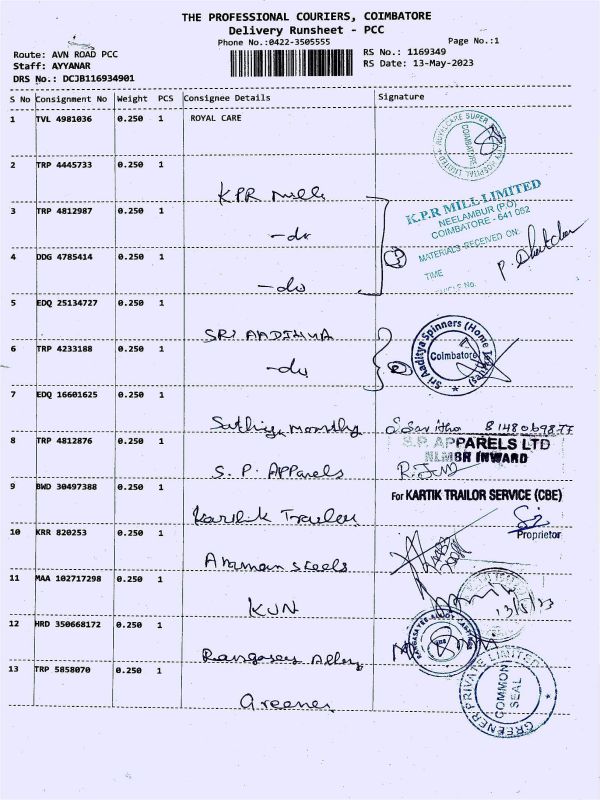 THE PROFESSIONAL COURIERS, COIMBATORE
Delivery Runsheet - PCC
Phone No.:0422-3505555
Page No.:1
Route: AVN ROAD PCC
RS No.: 1169349
Staff: AYYANAR
RS Date: 13-May-2023
DRS No.: DCJB116934901
S No Consignment No Weight PCS Consignee Details Signature
1 TVL 4981036 0.250 1 ROYAL CARE
COIMBATORE
2 TRP 4445733 0.250 1
KPR Mills
K.P.R MILL LIMITED
NEELAMBUR (P.O)
COIMBATORE - 641 062
MATERIALS RECEIVED ON:
TIME
3 TRP 4812987 0.250 1
-do
4 DDG 4785414 0.250 1
-do
3
5 EDQ 25134727 0.250 1
SRI AADITHYA
Sri Aaditya Spinners (Home Textiles)
Coimbatore
6 TRP 4233188 0.250 1
-do
2
7 EDQ 16601625 0.250 1
8 TRP 4812876 0.250 1
S. P. APParels
S.P. APPARELS LTD
NLMBR INWARD
9 BWD 30497388 0.250 1
Kartik Trailer
For KARTIK TRAILOR SERVICE (CBE)
Proprietor
10 KRR 820253 0.250 1
steels
11 MAA 102717298 0.250 1
KUN
13/5/23
12 HRD 350668172 0.250 1
Rangasay Alloy
13 TRP 5858070 0.250 1
Greener
GREENER PRIVATE LIMITED
COMMON
SEAL